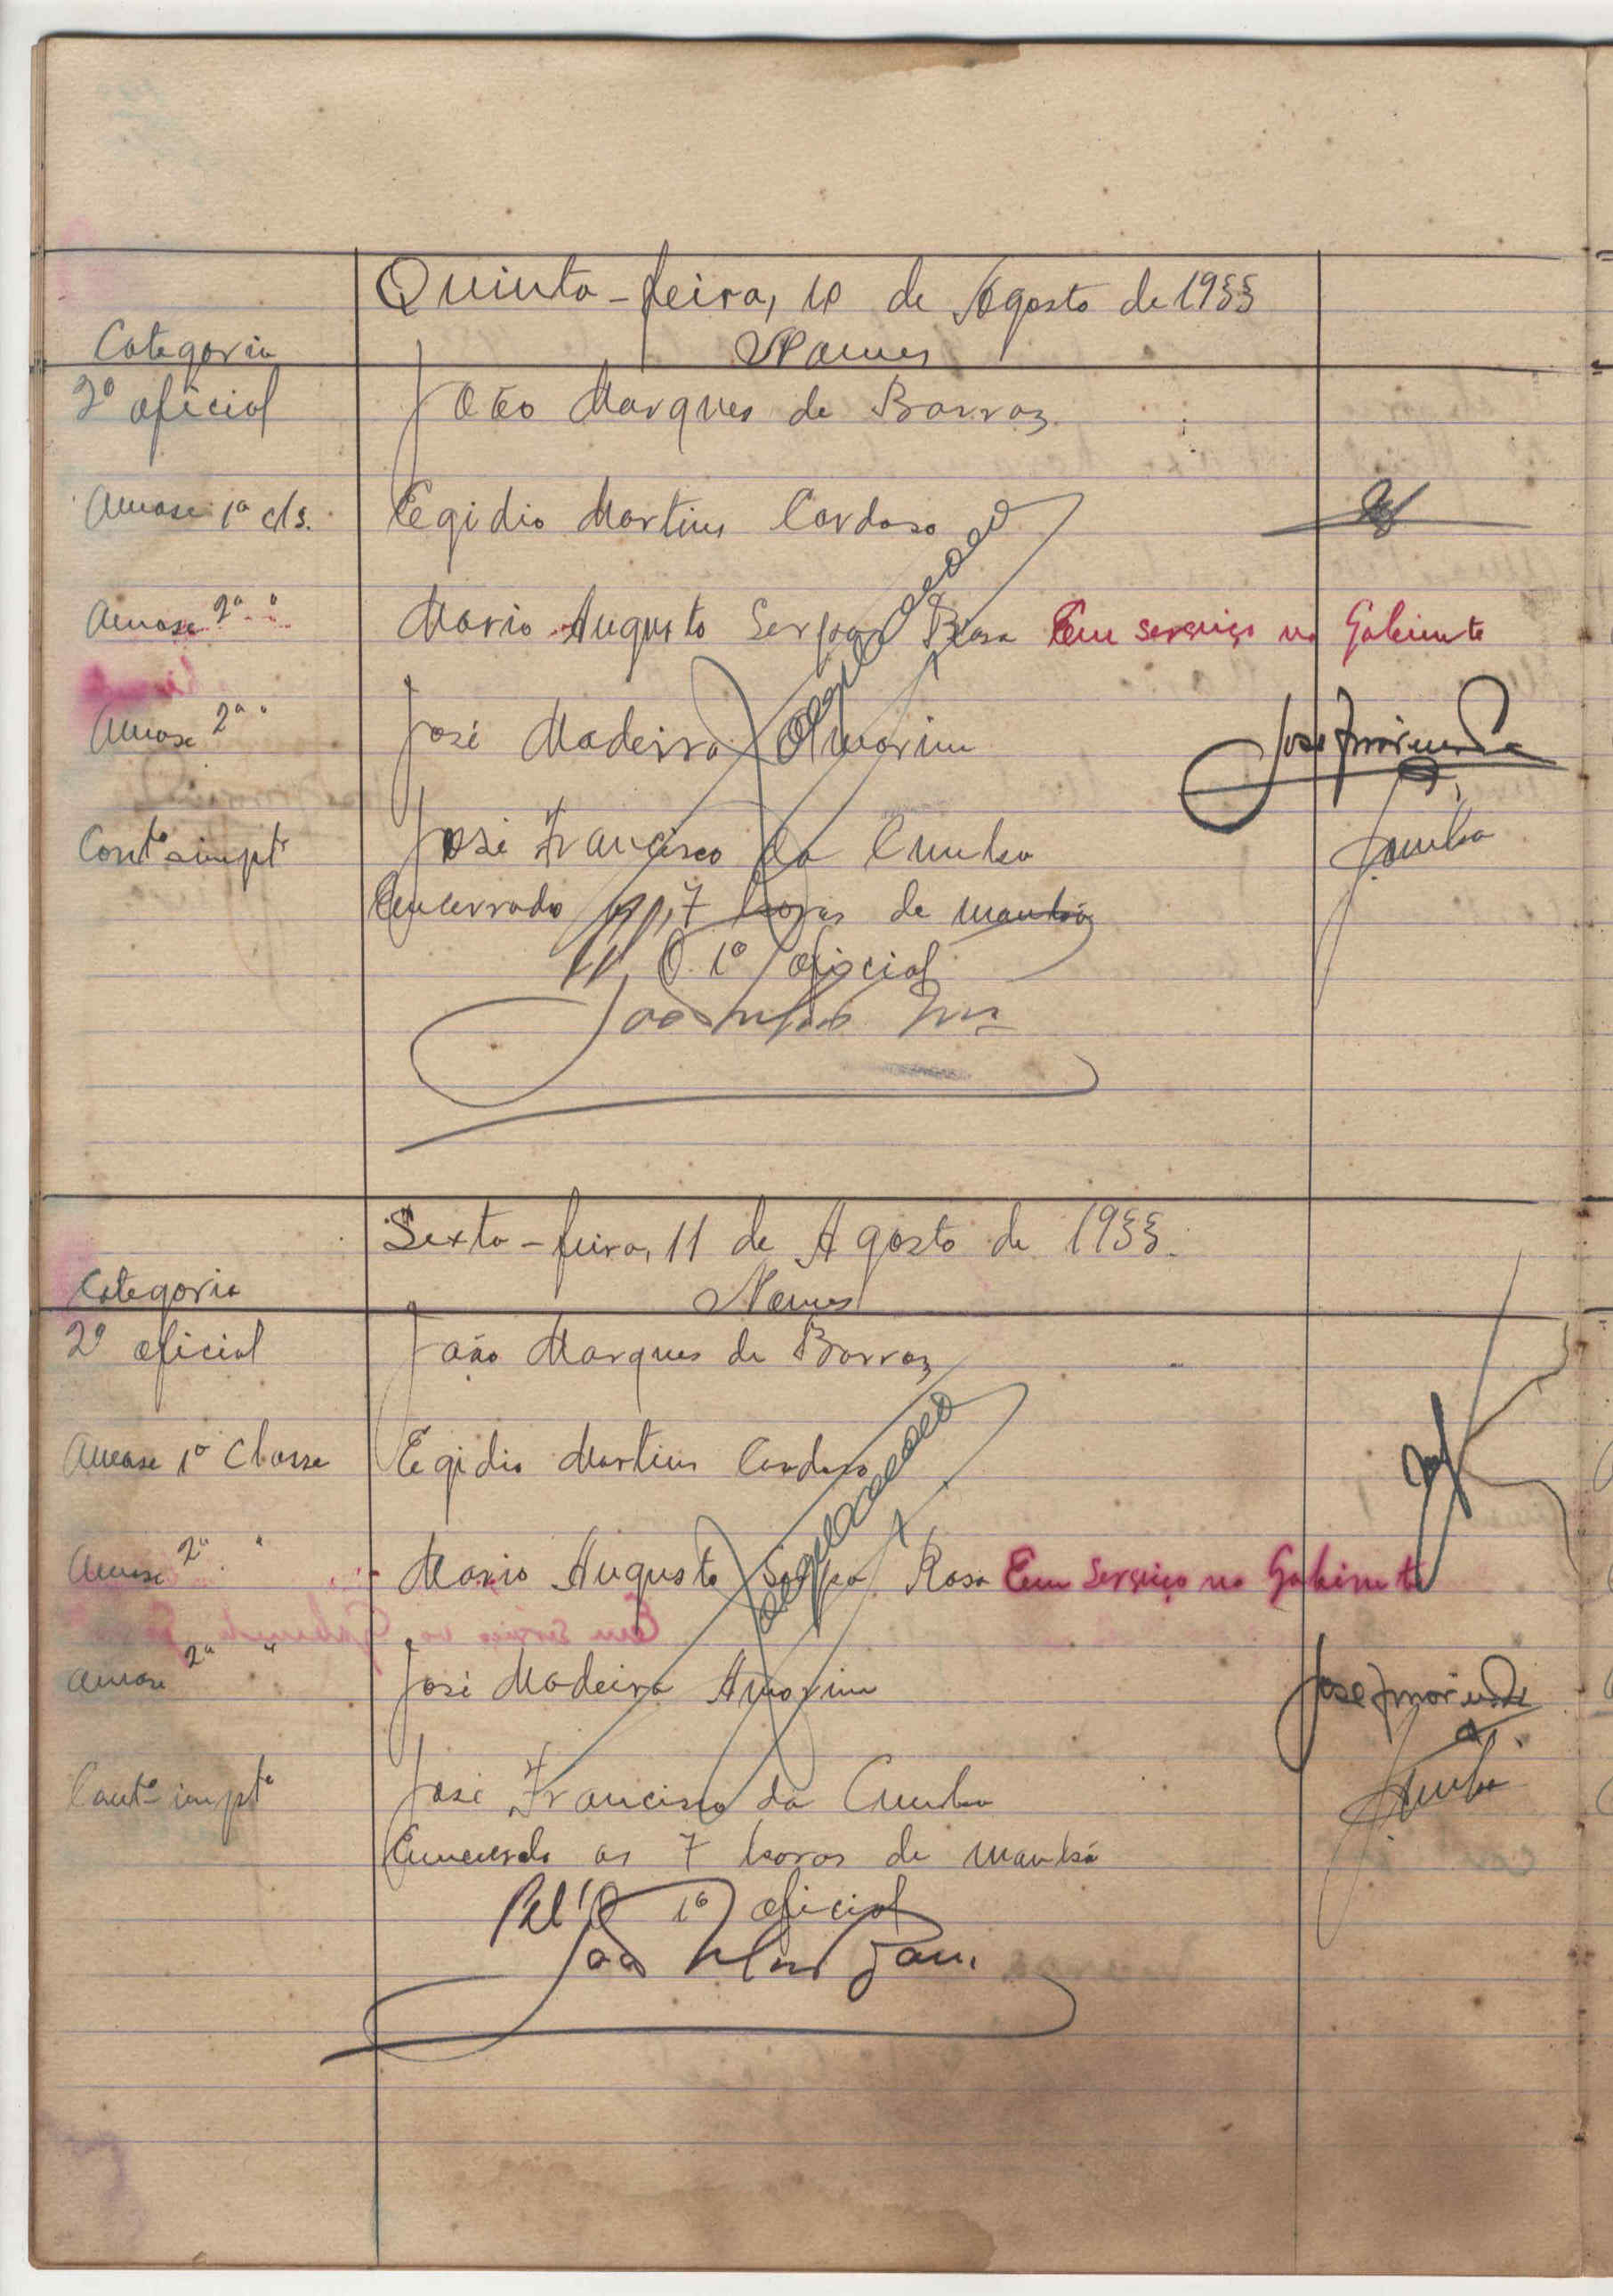 Quinta-feira, 10 de Agosto de 1933
Categoria Nomes
2º oficial João Marques de Barros
1ª cls. Egidio Martins Cardoso
2ª " Mario Augusto Serpa Rosa Em serviço no Gabinete
2ª " José Madeira Amorim José Amorim
José Francisco da Cunha Cunha
Encerrado 7 horas de manhã
O 1º oficial
Sexta-feira, 11 de Agosto de 1933.
Categoria Nomes
2º oficial João Marques de Barros
1ª Classe Egidio Martins Cardoso
2ª " Mario Augusto Serpa Rosa Em serviço no Gabinete
2ª " José Madeira Amorim José Amorim
José Francisco da Cunha Cunha
Encerrado as 7 horas de manhã
Pel'O 1º oficial